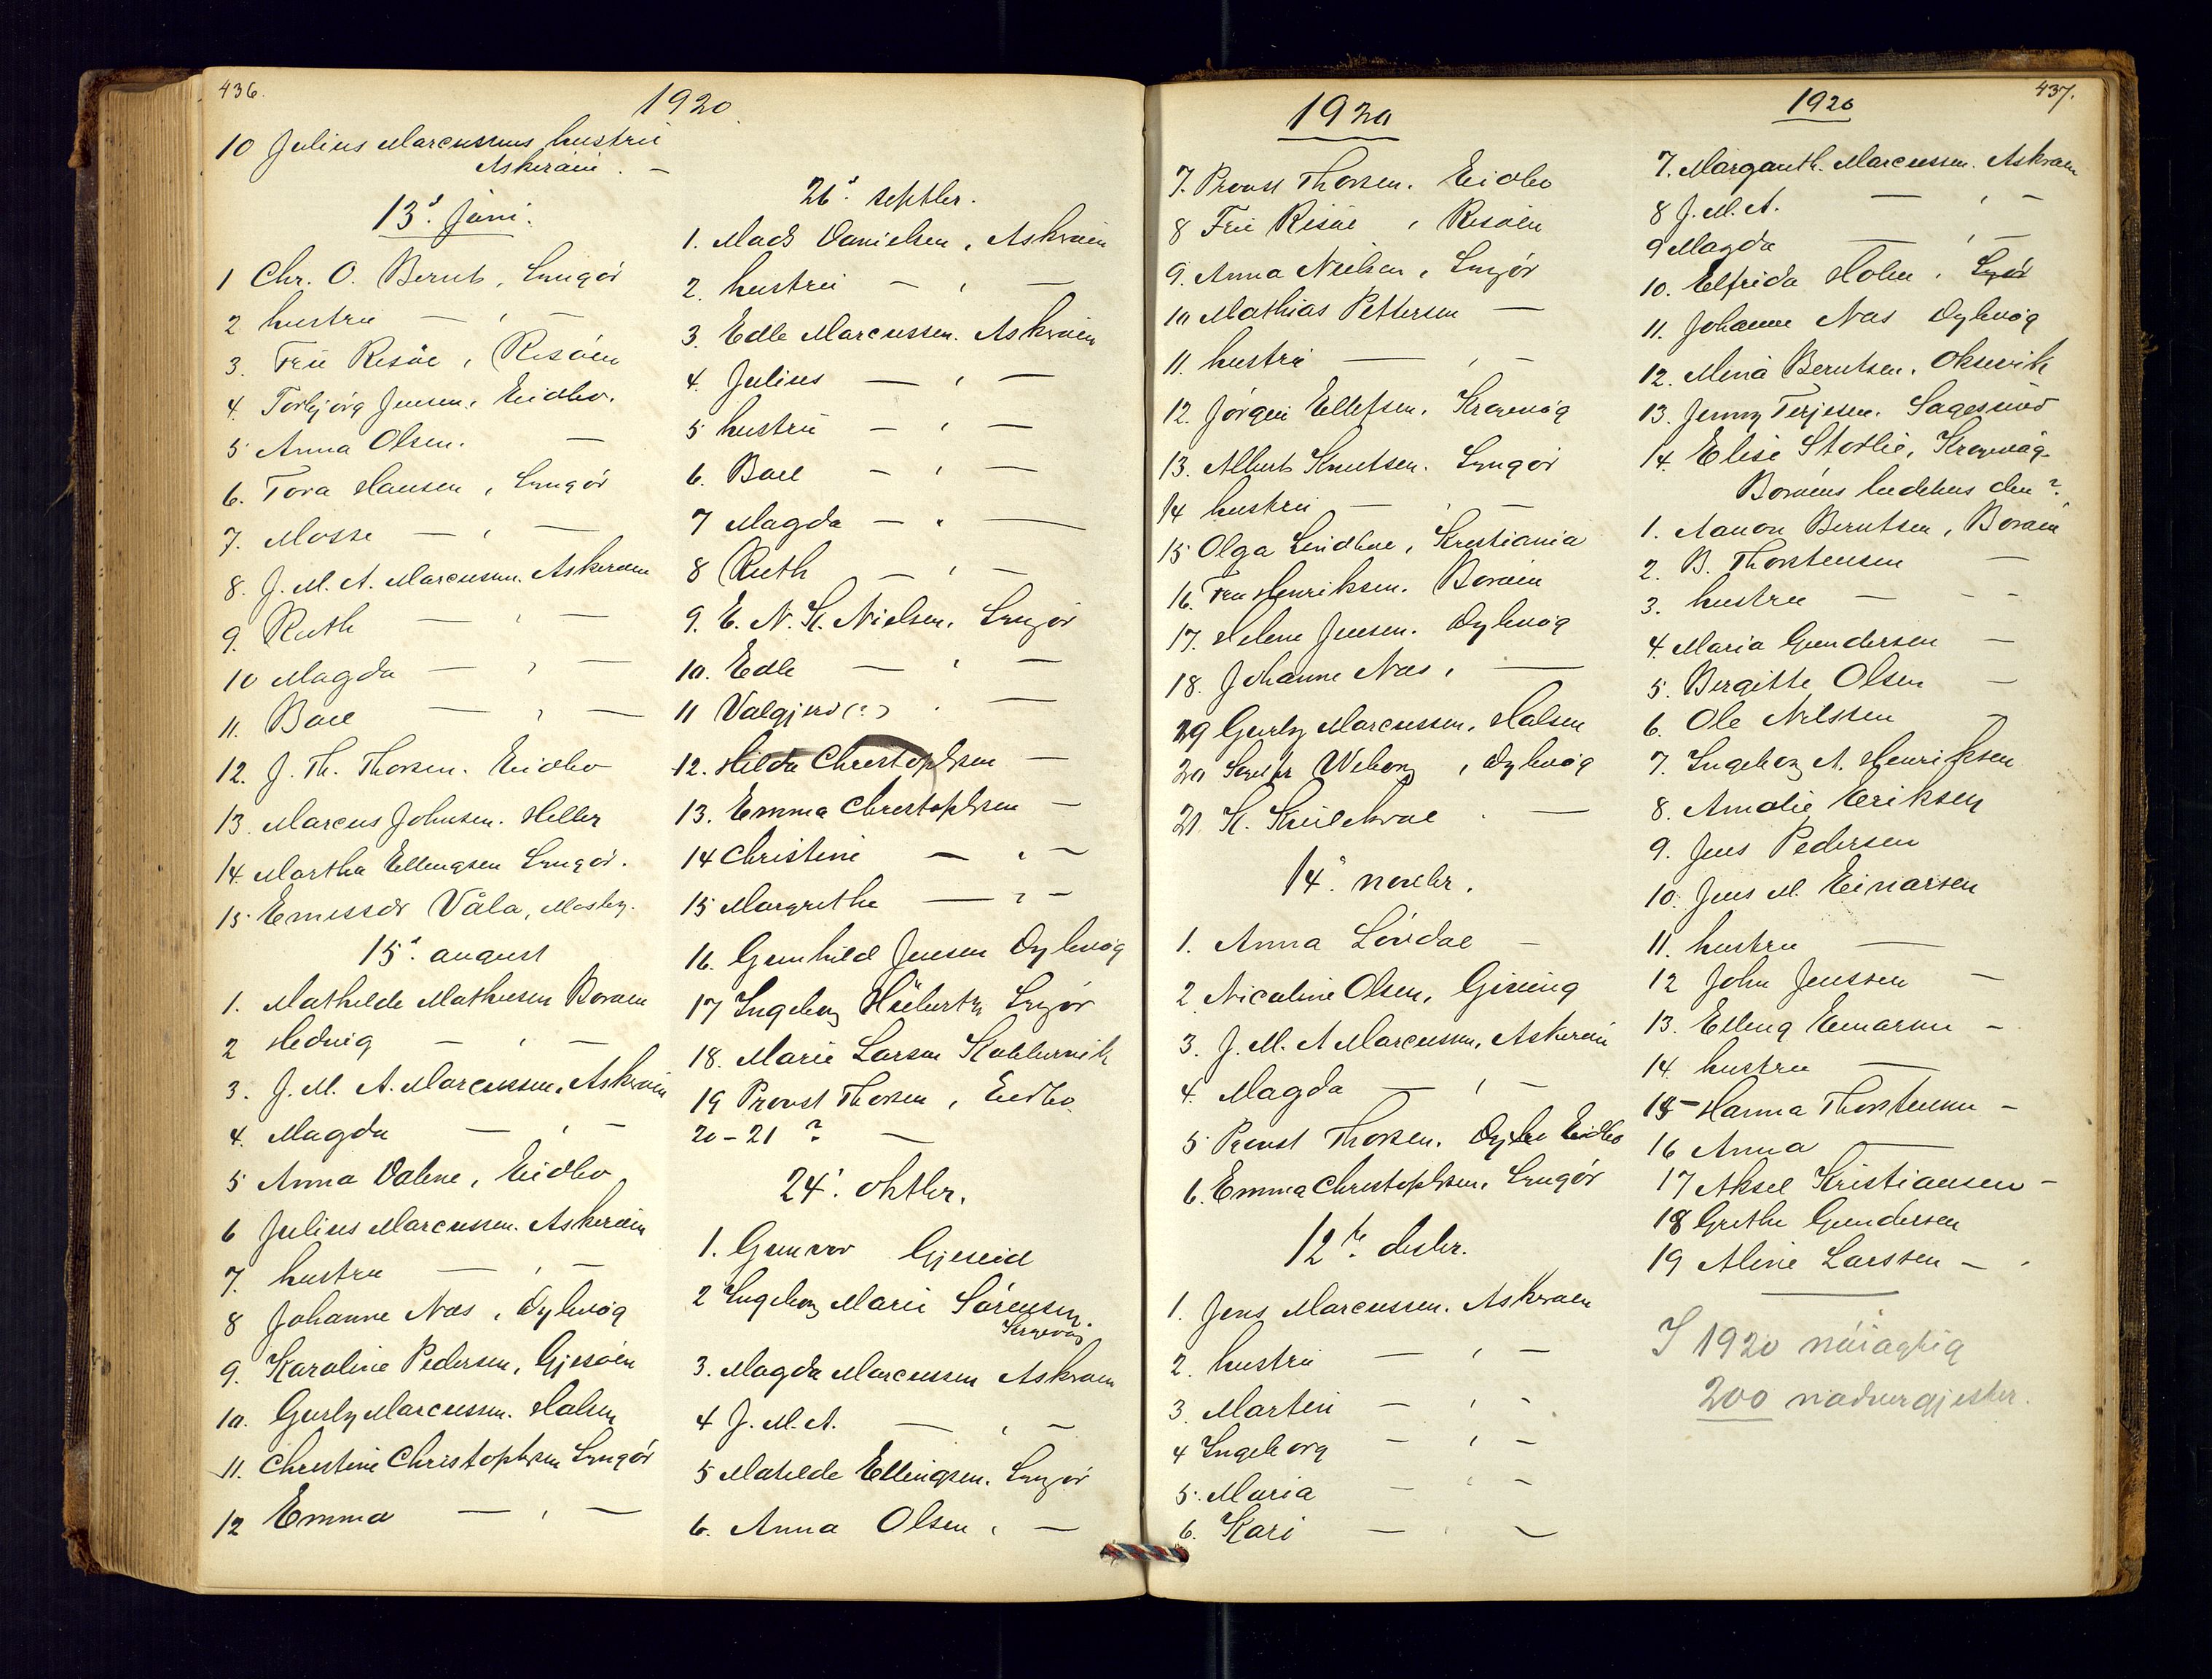 436.
1920
10 Julius Marcussens hustru
Askerøien. —
13'. juni.
1 Chr. O. Bernts, Lyngør
2 hustru — , —
3. Fru Risøe, Risøen
4. Torbjørg Jensen, Eidbo.
5 Anna Olsen. —
6. Tora Hansen, Lyngør
7. Mosse — , —
8. J. M. A. Marcussen. Askerøien
9. Ruth — , —
10 Magda — , —
11. Boel — , —
12. J. Th. Thorsen. Eidbo
13. Marcus Johnsen. Heller
14. Martha Ellingsen Lyngør.
15. Emissær Våla, Mosby.
15'. august
1. Mathilde Mathiesen Borøen
2 Hedvig — , —
3. J. M. A. Marcussen, Askerøien
4. Magda — , —
5 Anna Dalene, Eidbo
6 Julius Marcussen. Askerøien
7. hustru — , —
8 Johanne Næs, Dybvåg
9. Karoline Pedersen, Gjesøen
10. Gurly Marcussen. Halsen
11. Christine Christophersen Lyngør
12 Emma — , —
26'. septbr.
1. Mads Danielsen, Askerøien
2. hustru — , —
3. Edle Marcussen. Askerøien
4. Julius — , —
5 hustru — , —
6. Boel — , —
7 Magda — , —
8 Ruth — , —
9. E. N. K. Nielsen, Lyngør
10. Edle — , —
11 Valgjerd (?) , —
12. Hilda Christophersen —
13. Emma Christophersen —
14 Christine — , —
15 Margrethe — , —
16. Gunhild Jensen Dybvåg
17 Ingeborg Hübertz Lyngør
18. Marie Larsen Kabbervik
19 Provst Thorsen, Eidbo
20-21 ? —
24'. oktbr.
1. Gunvor Gjeseid
2 Ingeborg Marie Sørensen.
Krogevåg
3. Magda Marcussen Askerøien
4 J. M. A. — , —
5 Mathilde Ellingsen. Lyngør
6. Anna Olsen, —
1920
7. Provst Thorsen. Eidbo
8 Fru Risøe, Risøen
9. Anna Nielsen, Lyngør
10 Mathias Pettersen —
11. hustru — , —
12. Jørgen Ellefsen. Krogevåg
13. Albert Knutsen. Lyngør
14 hustru — , —
15 Olga Lindboe, Kristiania
16. Fru Henriksen. Borøen
17. Helene Jensen. Dybvåg
18. Johanne Næs, —
19 Gurly Marcussen, Halsen
20 Weborg, Dybvåg
21. K. —
14'. novbr.
1. Anna Løvdal —
2 Nicoline Olsen, Gjeving
3. J. M. A Marcussen, Askerøien
4. Magda — , —
5 Provst Thorsen. Eidbo
6. Emma Christophersen, Lyngør
12te. desbr.
1. Jens Marcussen. Askerøien
2. hustru — , —
3. Martin — , —
4 Ingeborg — , —
5. Maria — , —
6. Kari — , —
1920
437.
7. Marganth. Marcussen. Askerøien
8 J. M. A. — , —
9 Magda — , —
10. Elfrida Holm, Lyngør
11. Johanne Næs Dybvåg
12. Mina Berntsen, Oksevik
13. Jenny Terjesen. Sagesund
14. Elise Storlie, Krogevåg
Borøens bedehus den ?.
1. Aanon Berntsen, Borøen
2. B. Thorstensen —
3. hustru — - -
4. Maria Gundersen —
5. Bergitte Olsen —
6. Ole Nilssen —
7. Ingeborg A. Henriksen
8. Amalie Eriksen
9. Jens Pedersen
10. Jens M. Einarsen
11. hustru —
12 John Jenssen —
13. Elling Einarsen —
14. hustru —
15 Hanna Thorstensen —
16 Anna —
17 Aksel Kristiansen —
18 Grethe Gundersen
19 Aline Larssen —
I 1920 nøiagtig
200 nadvergjester.